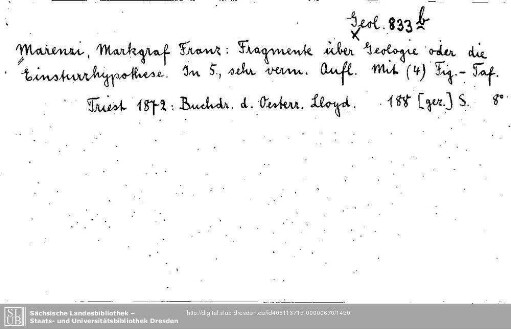 Geol. 833 b
Marenzi, Markgraf Franz: Fragmente über Geologie oder die
Einsturzhypothese. In 5., sehr verm. Aufl. Mit (4) Fig.-Taf.
Triest 1872: Buchdr. d. Oesterr. Lloyd. 188 [gez.] S. 8°
SLUB
Sächsische Landesbibliothek –
Staats- und Universitätsbibliothek Dresden